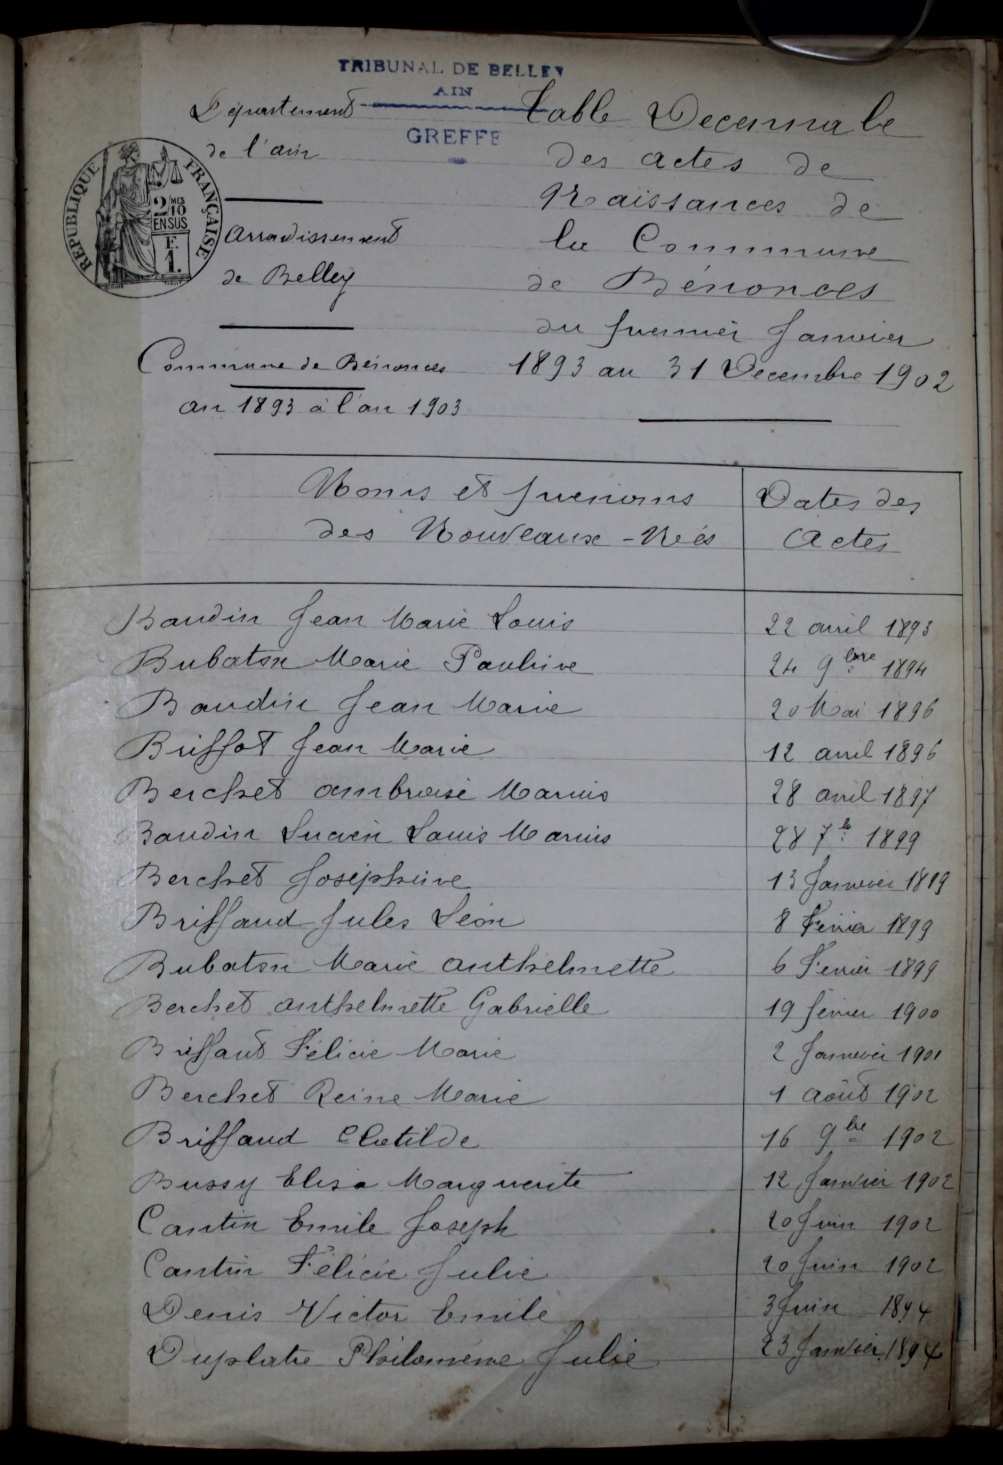 TRIBUNAL DE BELLEY
AIN
GREFFE
Département
de l'ain
RÉPUBLIQUE FRANÇAISE
2 MES
10
EN SUS
F.
1.
arrondissement
de Belley
Commune de Bénonces
an 1893 à l'an 1903
table Decennale
des actes de
Naissances de
la Commune
de Bénonces
du premier Janvier
1893 au 31 Decembre 1902
Noms et prenoms
des Nouveaux-Nés
Dates des
Actes
Baudin Jean Marie Louis 22 avril 1893
Bubaton Marie Pauline 24 9bre 1894
Baudin Jean Marie 20 Mai 1896
Briffot Jean Marie 12 avril 1896
Berchet ambroise Marius 28 avril 1897
Baudin Lucien Louis Marius 28 7b 1899
Berchet Joséphine 13 Janvier 1899
Briffaud Jules Léon 8 Février 1899
Bubaton Marie anthelmette 6 Fevrier 1899
Berchet anthelmette Gabrielle 19 février 1900
Briffaut Félicie Marie 2 Janvier 1901
Berchet Reine Marie 1 août 1902
Briffaud Clotilde 16 9bre 1902
Bussy Elisa Marguerite 12 Janvier 1902
Cantin Emile Joseph 20 Juin 1902
Cantin Félicie Julie 20 Juin 1902
Denis Victor Emile 3 Juin 1894
Duplatre Philomène Julie 23 Janvier 1894